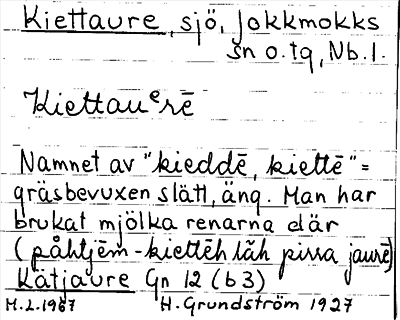 Kiettaure, sjö, Jokkmokks
sn o. tg, Nb. l.
Kiettauᵉrē
Namnet av "kieddē, kiettē" =
gräsbevuxen slätt, äng. Man har
brukat mjölka renarna där
(påhtjēm-kiettēh läh pirra jaurē)
Kätjaure Gn 12 (b3)
M.L. 1967 H. Grundström 1927